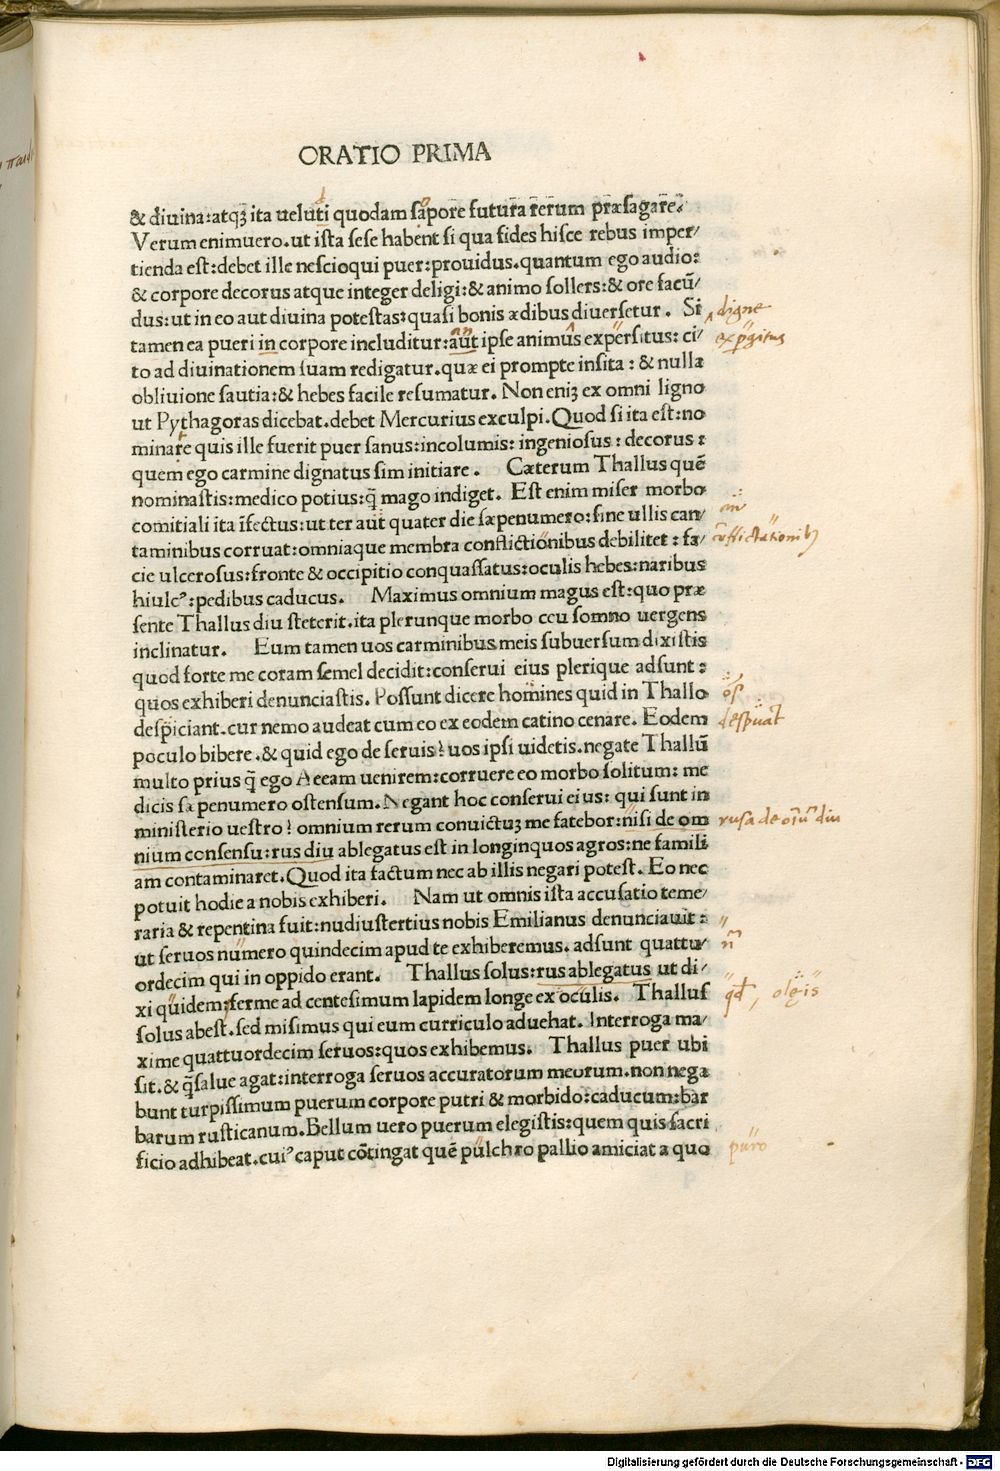 ORATIO PRIMA
& diuina:atqꝫ ita ueluti quodam sapore futura rerum præsagare.
Verum enimuero.ut ista sese habent si qua fides hisce rebus imper/
tienda est:debet ille nescioqui puer:prouidus.quantum ego audio:
& corpore decorus atque integer deligi:& animo sollers:& ore facū/
dus:ut in eo aut diuina potestas:quasi bonis ædibus diuersetur. Si
digne
tamen ea pueri in corpore includitur:aut ipse animus expersitus: ci/
an
expgitus
to ad diuinationem suam redigatur.quæ ei prompte insita : & nulla
obliuione sautia:& hebes facile resumatur. Non eniꝫ ex omni ligno
ut Pythagoras dicebat.debet Mercurius exculpi.Quod si ita est:no
minare quis ille fuerit puer sanus:incolumis: ingeniosus : decorus :
quem ego carmine dignatus sim initiare . Cæterum Thallus quē
nominastis:medico potius:q̄ mago indiget. Est enim miser morbo
comitiali ita īfectus:ut ter aut quater die sæpenumero:sine ullis can/
taminibus corruat:omniaque membra conflictionibus debilitet : fa/
cōflictationibꝫ
cie ulcerosus:fronte & occipitio conquassatus:oculis hebes:naribus
hiulcꝰ:pedibus caducus. Maximus omnium magus est:quo præ
sente Thallus diu steterit.ita plerunque morbo ceu somno uergens
inclinatur. Eum tamen uos carminibus meis subuersum dixistis
quod forte me coram semel decidit:conserui eius plerique adsunt :
quos exhiberi denunciastis. Possunt dicere homines quid in Thallo
despiciant.cur nemo audeat cum eo ex eodem catino cenare. Eodem
despuāt
poculo bibere.& quid ego de seruis? uos ipsi uidetis.negate Thallū
multo prius q̄ ego Aeeam uenirem:corruere eo morbo solitum: me
dicis sæpenumero ostensum. Negant hoc conserui eius: qui sunt in
ministerio uestro? omnium rerum conuictuꝫ me fatebor:nisi de om
rusa de oīuꝫ diu
nium consensu:rus diu ablegatus est in longinquos agros:ne famili
am contaminaret.Quod ita factum nec ab illis negari potest. Eo nec
potuit hodie a nobis exhiberi. Nam ut omnis ista accusatio teme/
raria & repentina fuit:nudiustertius nobis Emilianus denunciauit :
ut seruos numero quindecim apud te exhiberemus. adsunt quattu/
n̄
ordecim qui in oppido erant. Thallus solus:rus ablegatus ut di/
xi quidem:ferme ad centesimum lapidem longe ex oculis. Thallus
qd, olęis
solus abest.sed misimus qui eum curriculo aduehat. Interroga ma/
xime quattuordecim seruos:quos exhibemus. Thallus puer ubi
sit.& q̄salue agat:interroga seruos accuratorum meorum.non nega
bunt turpissimum puerum corpore putri & morbido:caducum:bar
barum rusticanum.Bellum uero puerum elegistis:quem quis sacri
ficio adhibeat.cuiꝰ caput cōtingat quē pulchro pallio amiciat a quo
puro
Digitalisierung gefördert durch die Deutsche Forschungsgemeinschaft - DFG